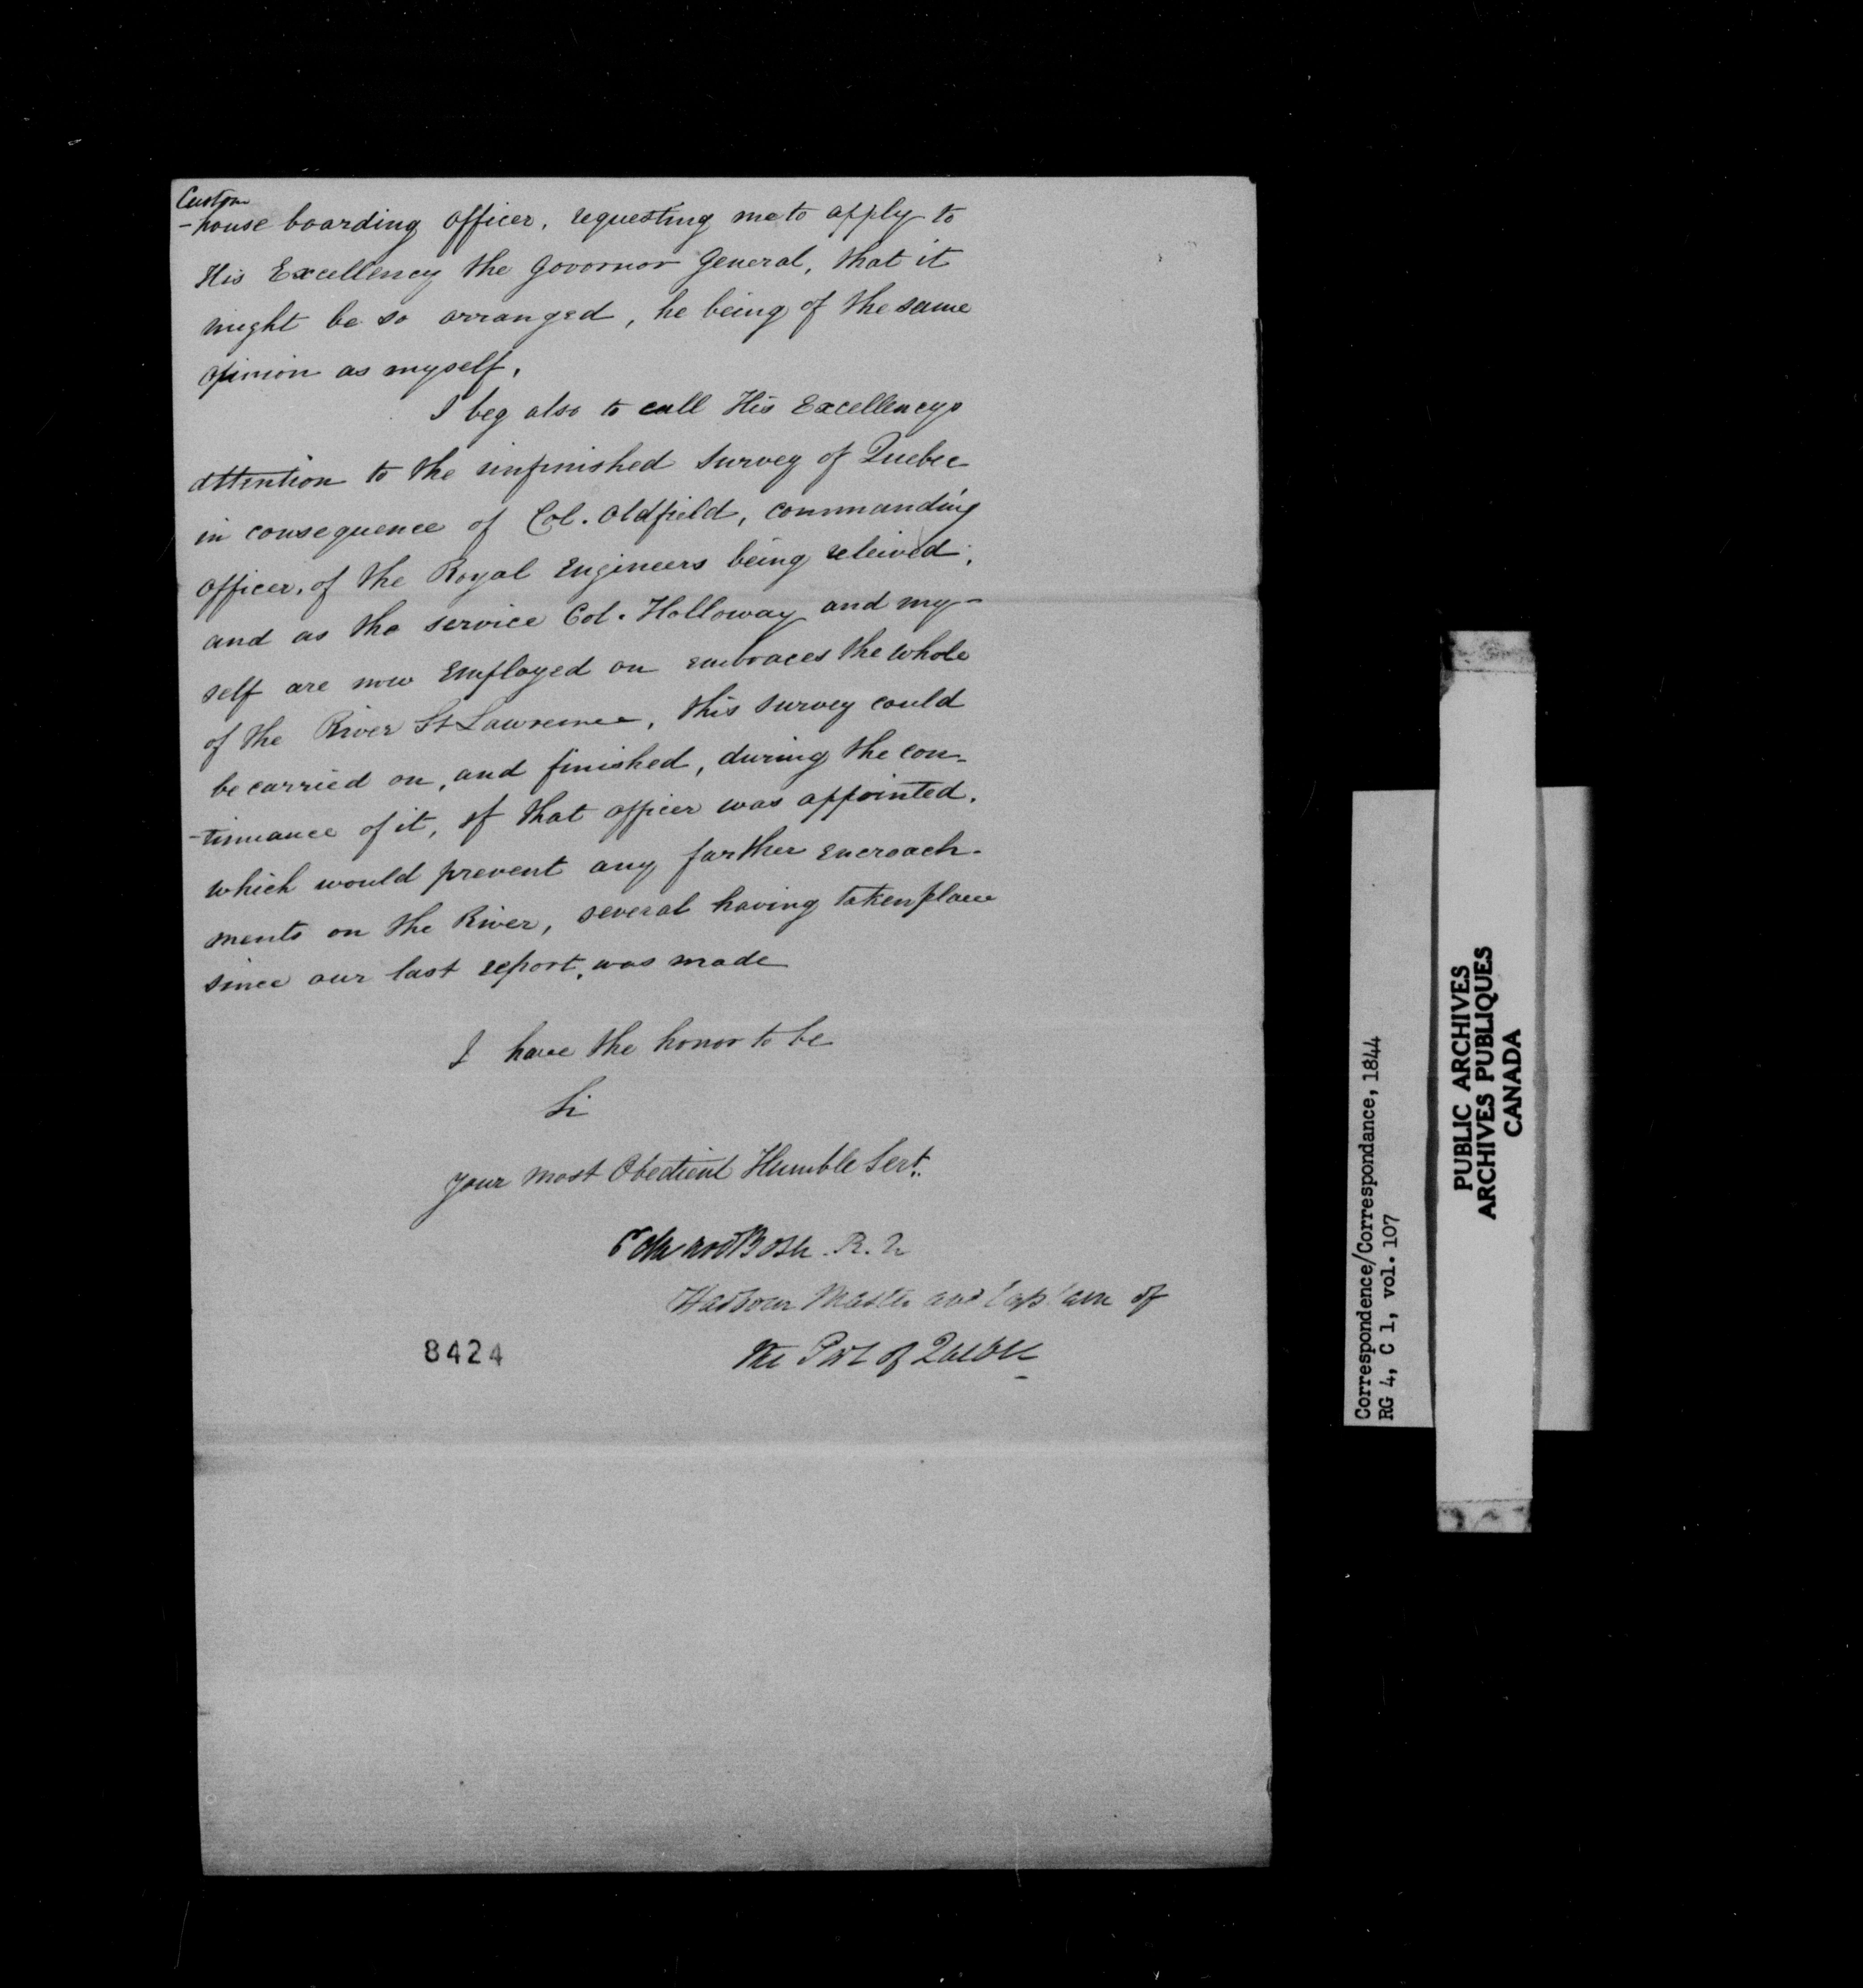 Custom
-house boarding officer, requesting me to apply to
His Excellency the Governor General, that it
might be so arranged, he being of the same
opinion as myself.
I beg also to call His Excellencys
attention to the unfinished survey of Quebec
in consequence of Col. Oldfield, commanding
officer, of the Royal Engineers being releived,
and as the service Col. Holloway and my-
self are now employed on embraces the whole
of the River St Lawrence, this survey could
be carried on, and finished, during the con-
-tinuance of it, if that officer was appointed.
which would prevent any farther encroach-
ments on the River, several having taken place
since our last report, was made
I have the honor to be
Sir
your most Obedient Humble Sert.
Edward Boxer R.N
Harbour Master and Captain of
the Port of Quebec
8424
Correspondence/Correspondance, 1844
RG 4, C 1, vol. 107
PUBLIC ARCHIVES
ARCHIVES PUBLIQUES
CANADA